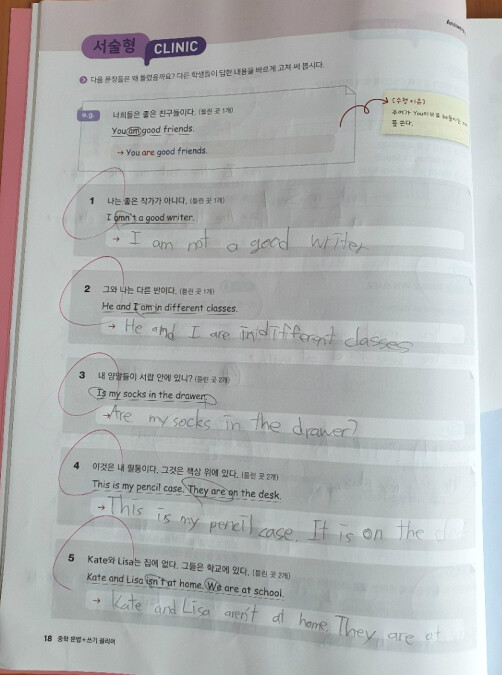 Answers
서술형 CLINIC
다음 문장들은 왜 틀렸을까요? 다른 학생들이 답한 내용을 바르게 고쳐 써 봅시다.
e.g. 너희들은 좋은 친구들이다. (틀린 곳 1개)
You am good friends.
→ You are good friends.
(수정 이유)
주어가 You이므로 be동사는
를 쓴다.
1 나는 좋은 작가가 아니다. (틀린 곳 1개)
I amn't a good writer.
→ I am not a good writer
2 그와 나는 다른 반이다. (틀린 곳 1개)
He and I am in different classes.
→ He and I are in different classes
3 내 양말들이 서랍 안에 있니? (틀린 곳 2개)
Is my socks in the drawer.
→ Are my socks in the drawer?
4 이것은 내 필통이다. 그것은 책상 위에 있다. (틀린 곳 2개)
This is my pencil case. They are on the desk.
→ This is my pencil case. It is on the
5 Kate와 Lisa는 집에 없다. 그들은 학교에 있다. (틀린 곳 2개)
Kate and Lisa isn't at home. We are at school.
→ Kate and Lisa aren't at home. They are at
18 중학 문법+쓰기 클리어